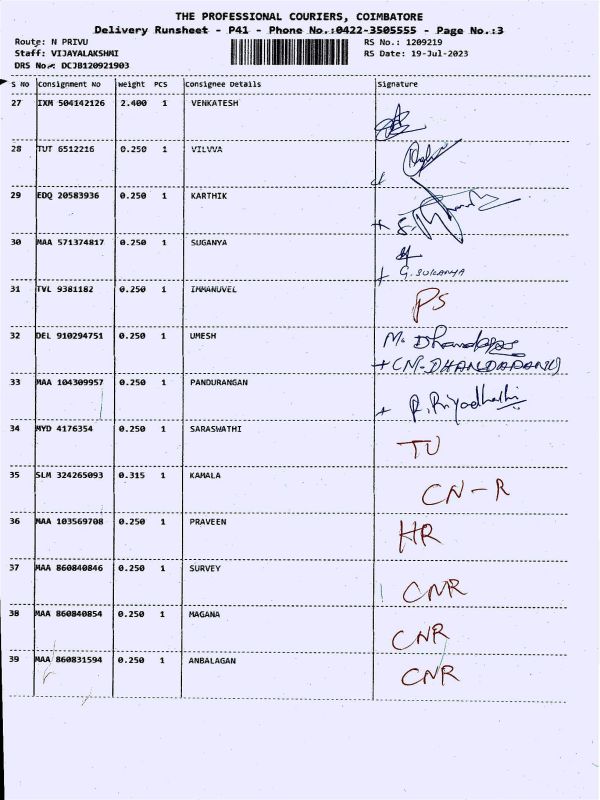 THE PROFESSIONAL COURIERS, COIMBATORE
Delivery Runsheet - P41 - Phone No.:0422-3505555 - Page No.:3
Route: N PRIVU RS No.: 1209219
Staff: VIJAYALAKSHMI RS Date: 19-Jul-2023
DRS No.: DCJB120921903
S No Consignment No Weight PCS Consignee Details Signature
27 IXM 504142126 2.400 1 VENKATESH
28 TUT 6512216 0.250 1 VILVVA
29 EDQ 20583936 0.250 1 KARTHIK
30 MAA 571374817 0.250 1 SUGANYA
G. SUKANYA
31 TVL 9381182 0.250 1 IMMANUVEL PS
32 DEL 910294751 0.250 1 UMESH M.
+CN-DHANDAPANI
33 MAA 104309957 0.250 1 PANDURANGAN + R.
34 MYD 4176354 0.250 1 SARASWATHI TU
35 SLM 324265093 0.315 1 KAMALA CN-R
36 MAA 103569708 0.250 1 PRAVEEN HR
37 MAA 860840846 0.250 1 SURVEY CNR
38 MAA 860840854 0.250 1 MAGANA CNR
39 MAA 860831594 0.250 1 ANBALAGAN CNR